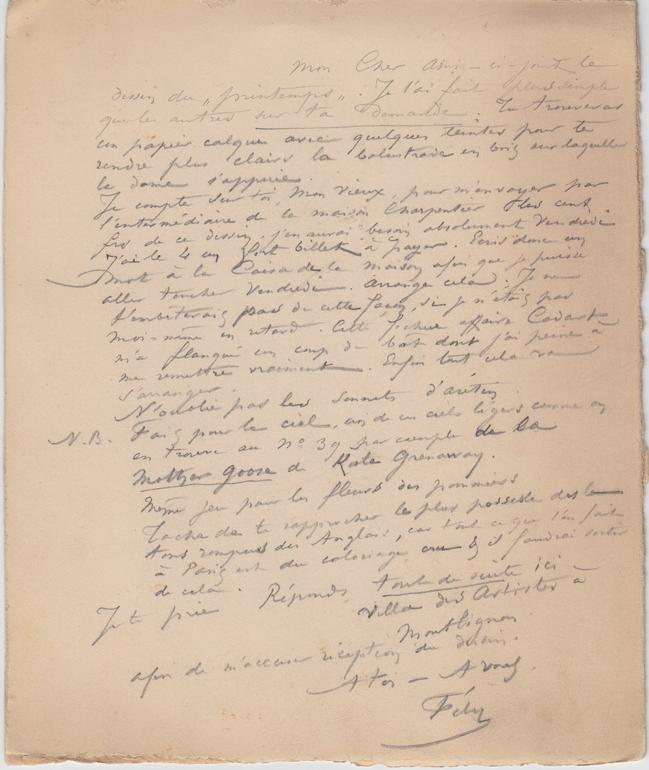 Mon Cher Ami – ci-joint le
dessin du „printemps". Je l'ai fait plus simple
que les autres sur ta demande. Tu trouveras
un papier calque avec quelques teintes pour te
rendre plus clairs la balustrade en bois sur laquelle
la dame s'appuie.
Je compte sur toi, mon vieux, pour m'envoyer par
l'intermédiaire de la maison Charpentier les cent
frs de ce dessin. j'en aurai besoin absolument Vendredi
J'ai le 4 un fort billet à payer. Ecris donc un
mot à la Caisse de la maison afin que je puisse
aller toucher Vendredi. Arrange cela. Je ne
t'embêterais pas de cette façon, si je n'étais pas
moi-même en retard. Cette fichue affaire Cadart
m'a flanqué un coup de bat dont j'ai peine à
me remettre vraiment. Enfin tout cela va
s'arranger.
N'oublie pas les Sonnets d'arétin
N.B. Fais pour le ciel, un de ces ciels légers comme on
en trouve au N° 39 par exemple de la
Mother Goose de Kate Greenaway.
Même jeu pour les fleurs des pommiers
Tache de te rapprocher le plus possible des
tons rompus des Anglais, car tout ce que l'on fait
à Paris est du coloriage cru & il faudrai sortir
de cela.
Je te prie Réponds tout de suite ici
Villa des Artistes à
Montlignon
afin de m'accuser réception du dessin.
A toi –
Félix